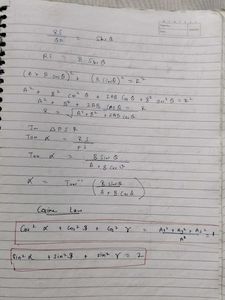 RS/QR = Sin θ
RS = B Sin θ
(A + B Cos θ)² + (B Sin θ)² = R²
A² + B² Cos² θ + 2AB Cos θ + B² Sin² θ = R²
A² + B² + 2AB Cos θ = R
R = √A² + B² + 2AB Cos θ
In Δ PSR
Tan α = RS/PS
Tan α = B Sin θ/A + B Cos θ
α = Tan⁻¹ (B Sin θ/A + B Cos θ)
Cosine Law
Cos² α + Cos² β + Cos² γ = Ax² + Ay² + Az²/A² = 1
Sin² α + Sin² β + Sin² γ = 2